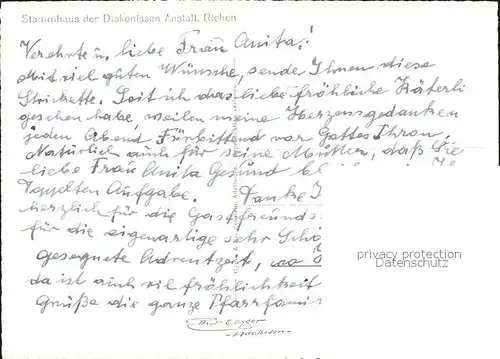 Stammhaus der Diakonissen Anstalt, Riehen
Verehrte u. liebe Frau Anita!
Mit viel guten Wünsche, sende Ihnen diese
Strickette. Seit ich das liebe fröhliche Käterli
gesehen habe, weilen meine Herzensgedanken
jeden Abend Fürbittend vor Gottes Thron,
Natürlich auch für seine Mutter, daß Sie
liebe Frau Anita Gesund
Doppelten Aufgabe. Danke
herzlich für die Gastfreunds
für die eigenartige sehr Schö
gesegnete Adventzeit, wo
da ist auch viel fröhlichkeit
Grüße die ganze Pfarrfami
privacy protection
Datenschutz